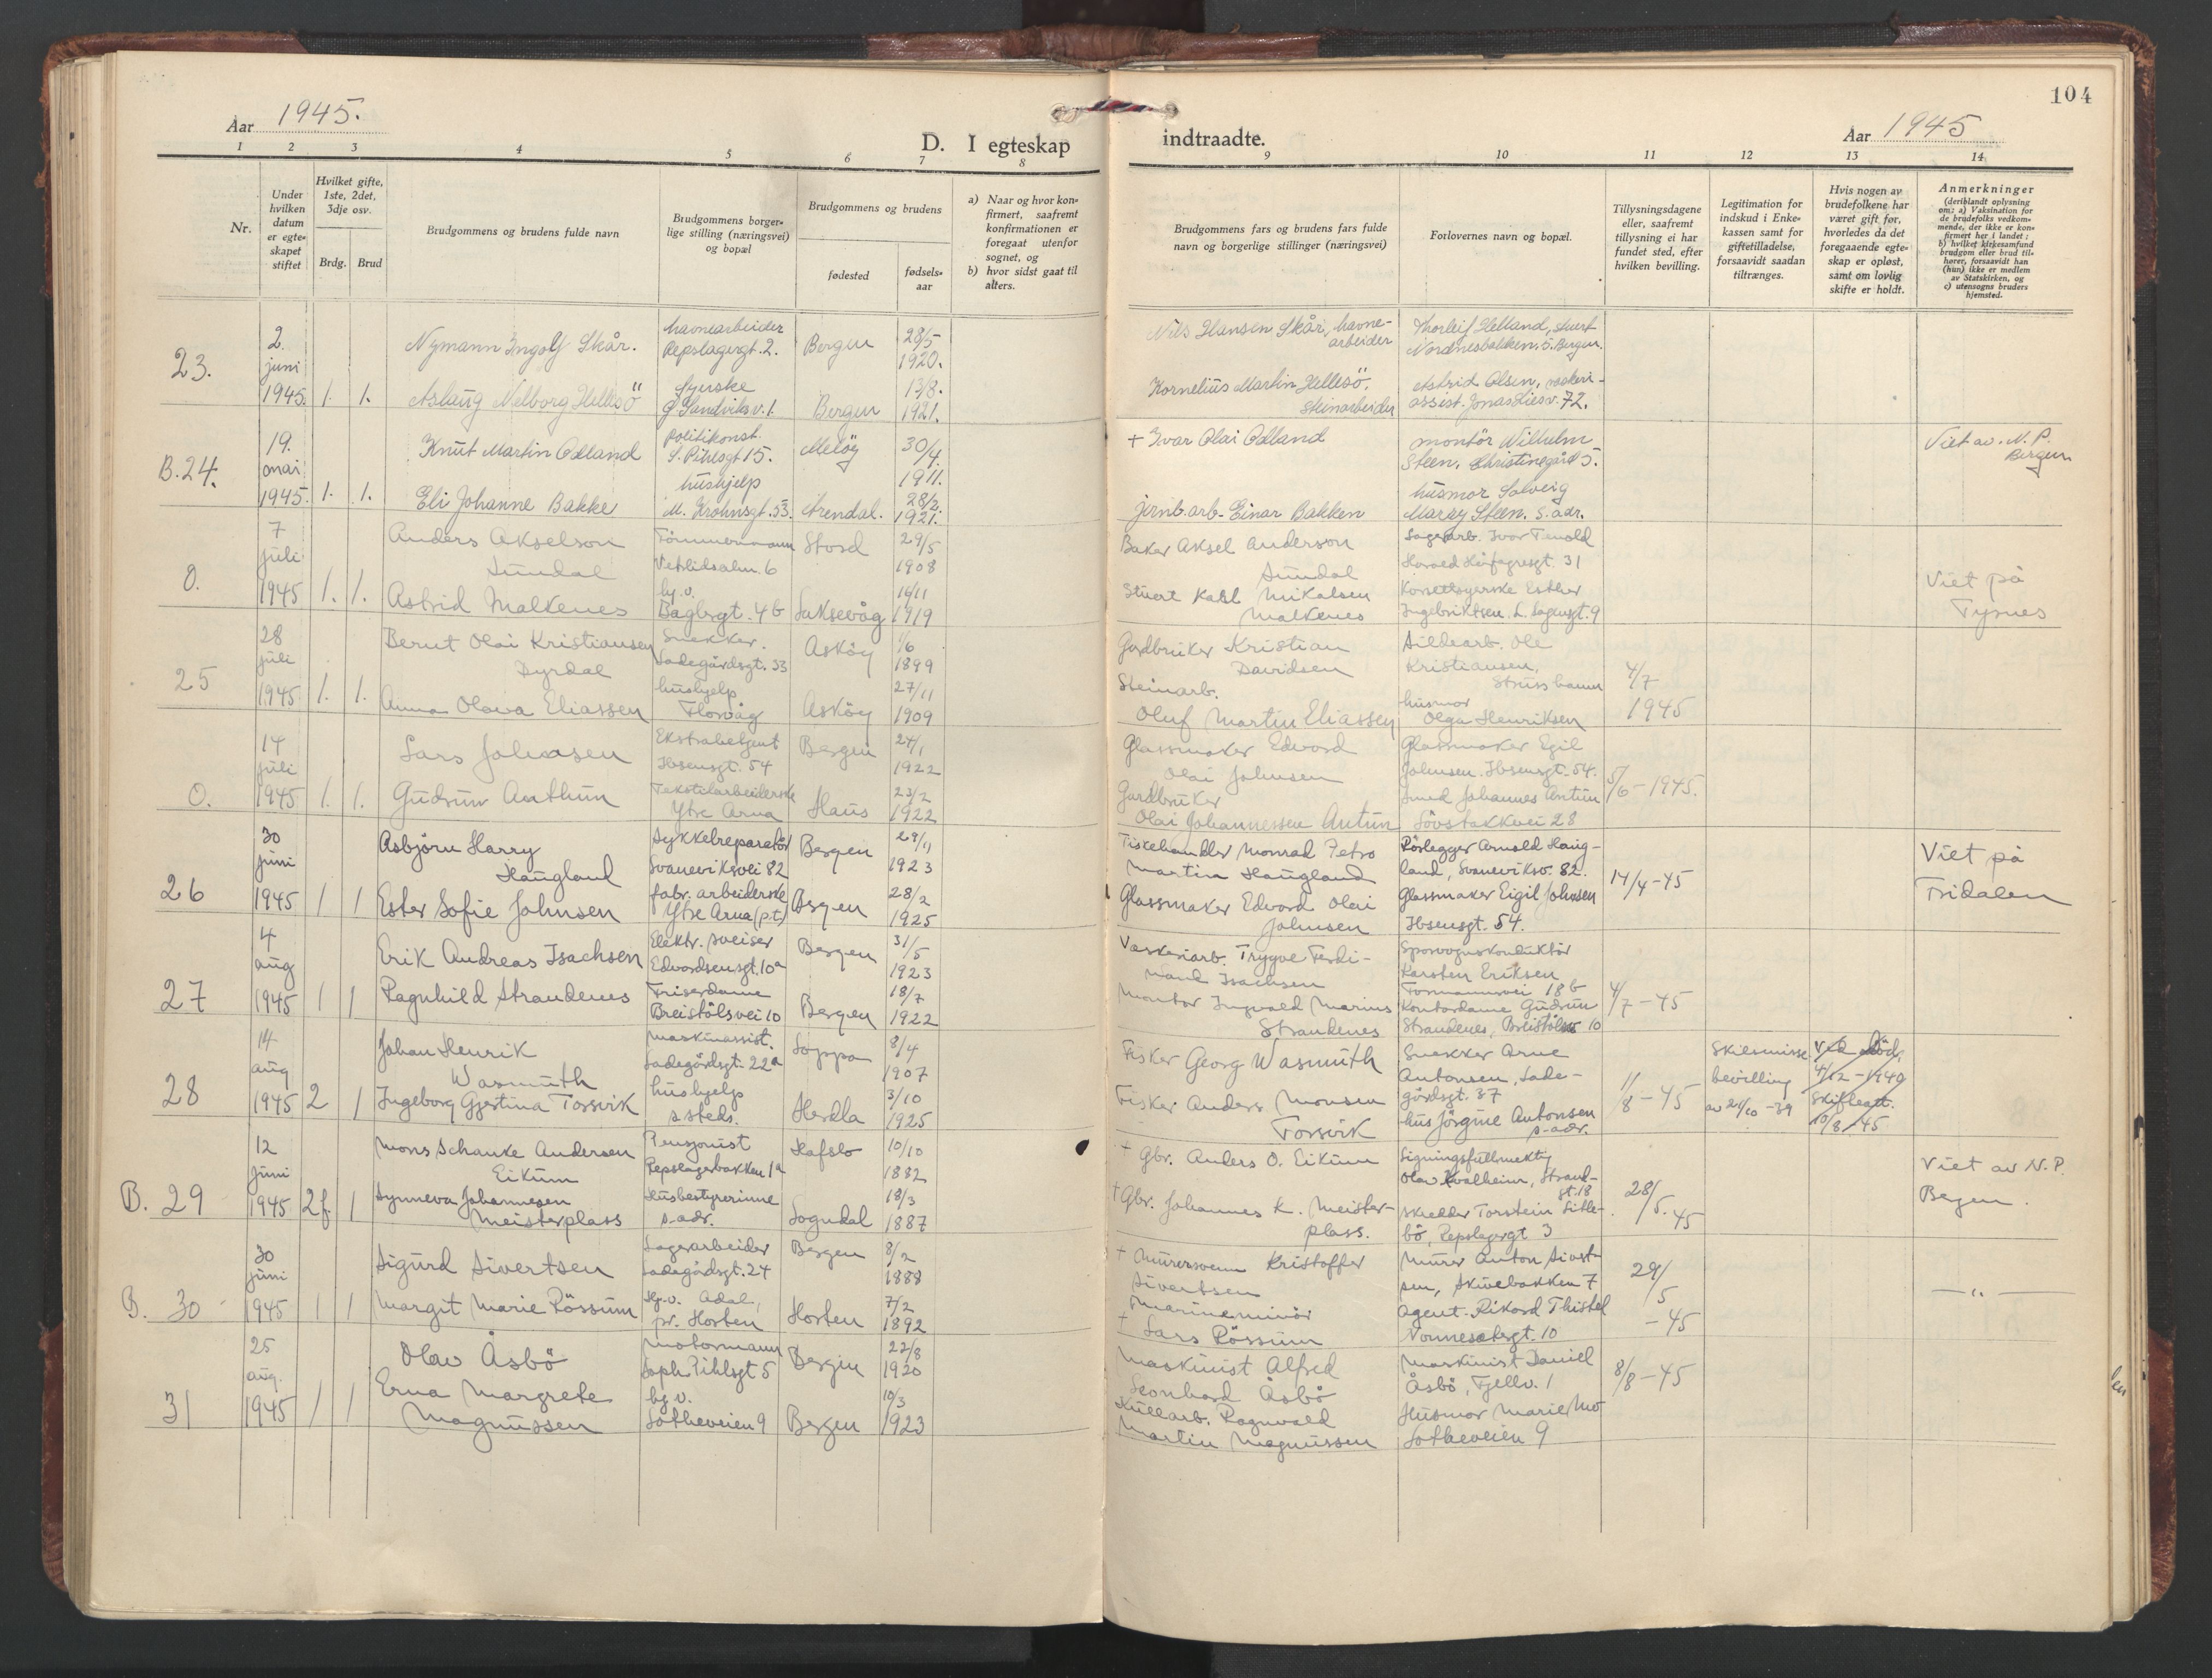 104
Aar 1945.
D. I egteskap indtraadte.
Aar 1945
1 2 3 4 5 6 7 8 9 10 11 12 13 14
Nr.
Under
hvilken
datum
er egte-
skapet
stiftet
Hvilket gifte,
1ste, 2det,
3dje osv.
Brdg. Brud
Brudgommens og brudens fulde navn
Brudgommens borger-
lige stilling (næringsvei)
og bopæl
Brudgommens og brudens
fødested
fødsels-
aar
a) Naar og hvor kon-
firmert, saafremt
konfirmationen er
foregaat utenfor
sognet, og
b) hvor sidst gaat til
alters.
Brudgommens fars og brudens fars fulde
navn og borgerlige stillinger (næringsvei)
Forlovernes navn og bopæl.
Tillysningsdagene
eller, saafremt
tillysning ei har
fundet sted, efter
hvilken bevilling.
Legitimation for
indskud i Enke-
kassen samt for
giftetilladelse,
forsaavidt saadan
tiltrænges.
Hvis nogen av
brudefolkene har
været gift før,
hvorledes da det
foregaaende egte-
skap er opløst,
samt om lovlig
skifte er holdt.
Anmerkninger
(deriblandt oplysning
om: a) Vaksination for
de brudefolks vedkom-
mende, der ikke er kon-
firmert her i landet;
b) hvilket kirkesamfund
brudgom eller brud til-
hører, forsaavidt han
(hun) ikke er medlem
av Statskirken, og
c) utensogns bruders
hjemsted.
23.
2.
juni
1945. 1. 1.
Nymann Ingolf Skår.
Aslaug Nelborg Hellesö
havnearbeider
Repslagergt. 2.
Syerske
Sandviksv. 1.
Bergen
Bergen
28/5
1920.
13/8.
1921.
Nils Hansen Skår, havne-
arbeider
Kornelius Martin Hellesö.
Steinarbeider
Thorleif Helland, stuert
Nordnesbakken. 5. Bergen.
Astrid Olsen, vaskeri-
assist. Jonas Liesv. 72.
B.24.
19.
mai
1945. 1. 1.
Knut Martin Odland
Eli Johanne Bakke
politikonst.
S. Pihlsgt 15.
hushjelp
M. Krohnsgt. 53.
Melöy
Arendal.
30/4.
1911.
28/2.
1921.
+ Ivar Olai Odland
jernb.arb. Einar Bakken
montör Wilhelm
Steen, Christinegård 5.
husmor Solveig
Marry Steen. s. adr.
Viet av. N. P.
Bergen
0.
7
juli
1945 1. 1.
Anders Akselson
Sundal
Astrid Malkenes
Tömmermann
Vetrlidsalm. 6
hj. v.
Baglergt. 4b
Stord
Laksevåg
29/5
1908
16/11
1919
Baker Aksel Anderson
Sundal
Stuert Karl Mikalsen
Malkenes
Lagerarb. Ivar Tenold
Harald Hårfagresgt. 31
Korsettsyerske Esther
Ingebriktsen L. Sagensgt. 9
Viet på
Tysnes
25
28
juli
1945. 1. 1.
Bernt Olai Kristiansen
Dyrdal
Anna Olava Eliassen
Snekker.
Ladegårdsgt. 33
hushjelp
Florvåg
Asköy
Asköy
1/6
1899
27/11
1909
Gardbruker Kristian
Davidsen
Steinarb.
Oluf Martin Eliassen
Sildearb. Ole
Kristiansen,
Strusshamn
husmor
Olga Henriksen
4/7
1945
0.
14
juli
1945 1. 1.
Lars Johnsen
Gudrun Anthun
Ekstrabetjent
Ibsensgt. 54
Tekstilarbeiderske
Ytre Arna
Bergen
Haus
24/1
1922
23/2
1922
Glassmaker Edvard
Olai Johnsen
Gardbruker
Olai Johannessen Antun
Glassmaker Egil
Johnsen. Ibsensgt. 54.
Smed Johannes Antun
Lövstakkvei 28
5/6-1945.
26
30
juni
1945 1 1
Asbjörn Harry
Haugland
Ester Sofie Johnsen
Sykkelreparatör
Svaneviksvei 82
fabr. arbeiderske
Ytre Arna (p.t)
Bergen
Bergen
29/11
1923
28/2
1925
Fiskehandler Monrad Petro
Martin Haugland
Glassmaker Edvard Olai
Johnsen
Rörlegger Arnold Haug-
land, Svaneviksv. 82.
Glassmaker Eigil Johnsen
Ibsensgt. 54.
14/4-45
Viet på
Fridalen
27
4
aug
1945 1 1
Erik Andreas Isachsen
Ragnhild Strandenes
Elektr. sveiser
Edvardsensgt. 10a
Friserdame
Breistölsvei 10
Bergen
Bergen
31/5
1923
18/7
1922
Vaskeriarb. Trygve Ferdi-
nand Isachsen
Montör Ingvald Marius
Strandenes
Sporvognskonduktör
Karsten Eriksen
Formannsvei 18b
Kontordame Gudrun
Strandenes, Breistölsv 10
4/7-45
28
14
aug
1945 2 1
Johan Henrik
Wasmuth
Ingeborg Gjertina Torsvik
Maskinassist.
Ladegårdsgt. 22a
hushjelp
s. steds.
Loppa
Herdla
8/4
1907
3/10
1925
Fisker Georg Wasmuth
Fisker Anders Monsen
Torsvik
Snekker Arne
Antonsen, Lade-
gårdsgt. 37
hus Jörgine Antonsen
s. adr.
1/8-45
Skilsmisse
bevilling
av 21/10-39
Ved död,
4/12-1940
Skifteatt.
10/8-45
B. 29
12
juni
1945 2f. 1
Mons Schanke Andersen
Eikum
Synneva Johannesen
Meisterplass
Pensjonist
Repslagerbakken 1a
Husbestyrerinne
s. adr.
Hafslo
Sogndal
10/10
1882
18/3
1887
+ Gbr. Anders O. Eikum
+ Gbr. Johannes K. Meister-
plass.
Signingsfullmektig
Olav Kvalheim, Strand-
gt. 18
Skredder Torstein Litle-
bö, Repslagergt 3
28/5.45
Viet av N.P.
Bergen.
B. 30
30
juni
1945 1 1
Sigurd Sivertsen
Margit Marie Rössum
Lagerarbeider
Ladegårdsgt. 24
Hj. v. Adal,
pr. Horten
Bergen
Horten
8/2
1888
7/2
1892
+ Murersvenn Kristoffer
Sivertsen
Marineminör
+ Lars Rössum
Murer Anton Sivert-
sen, Skivebakken 7
Agent Rikard Thistel
Nonnesetergt. 10
29/5
-45
— " —
31
25
aug.
1945 1 1
Olav Åsbö
Erna Margrete
Magnussen
Motormann
Soph. Pihlsgt 5
hj. v.
Lotheveien 9
Bergen
Bergen
22/8
1920
10/3
1923
Maskinist Alfred
Leonhard Åsbö
Kullarb. Ragnvald
Martin Magnussen
Maskinist Daniel
Åsbö, Fjellv. 1
Husmor Marie Mo
Lotheveien 9
8/8-45